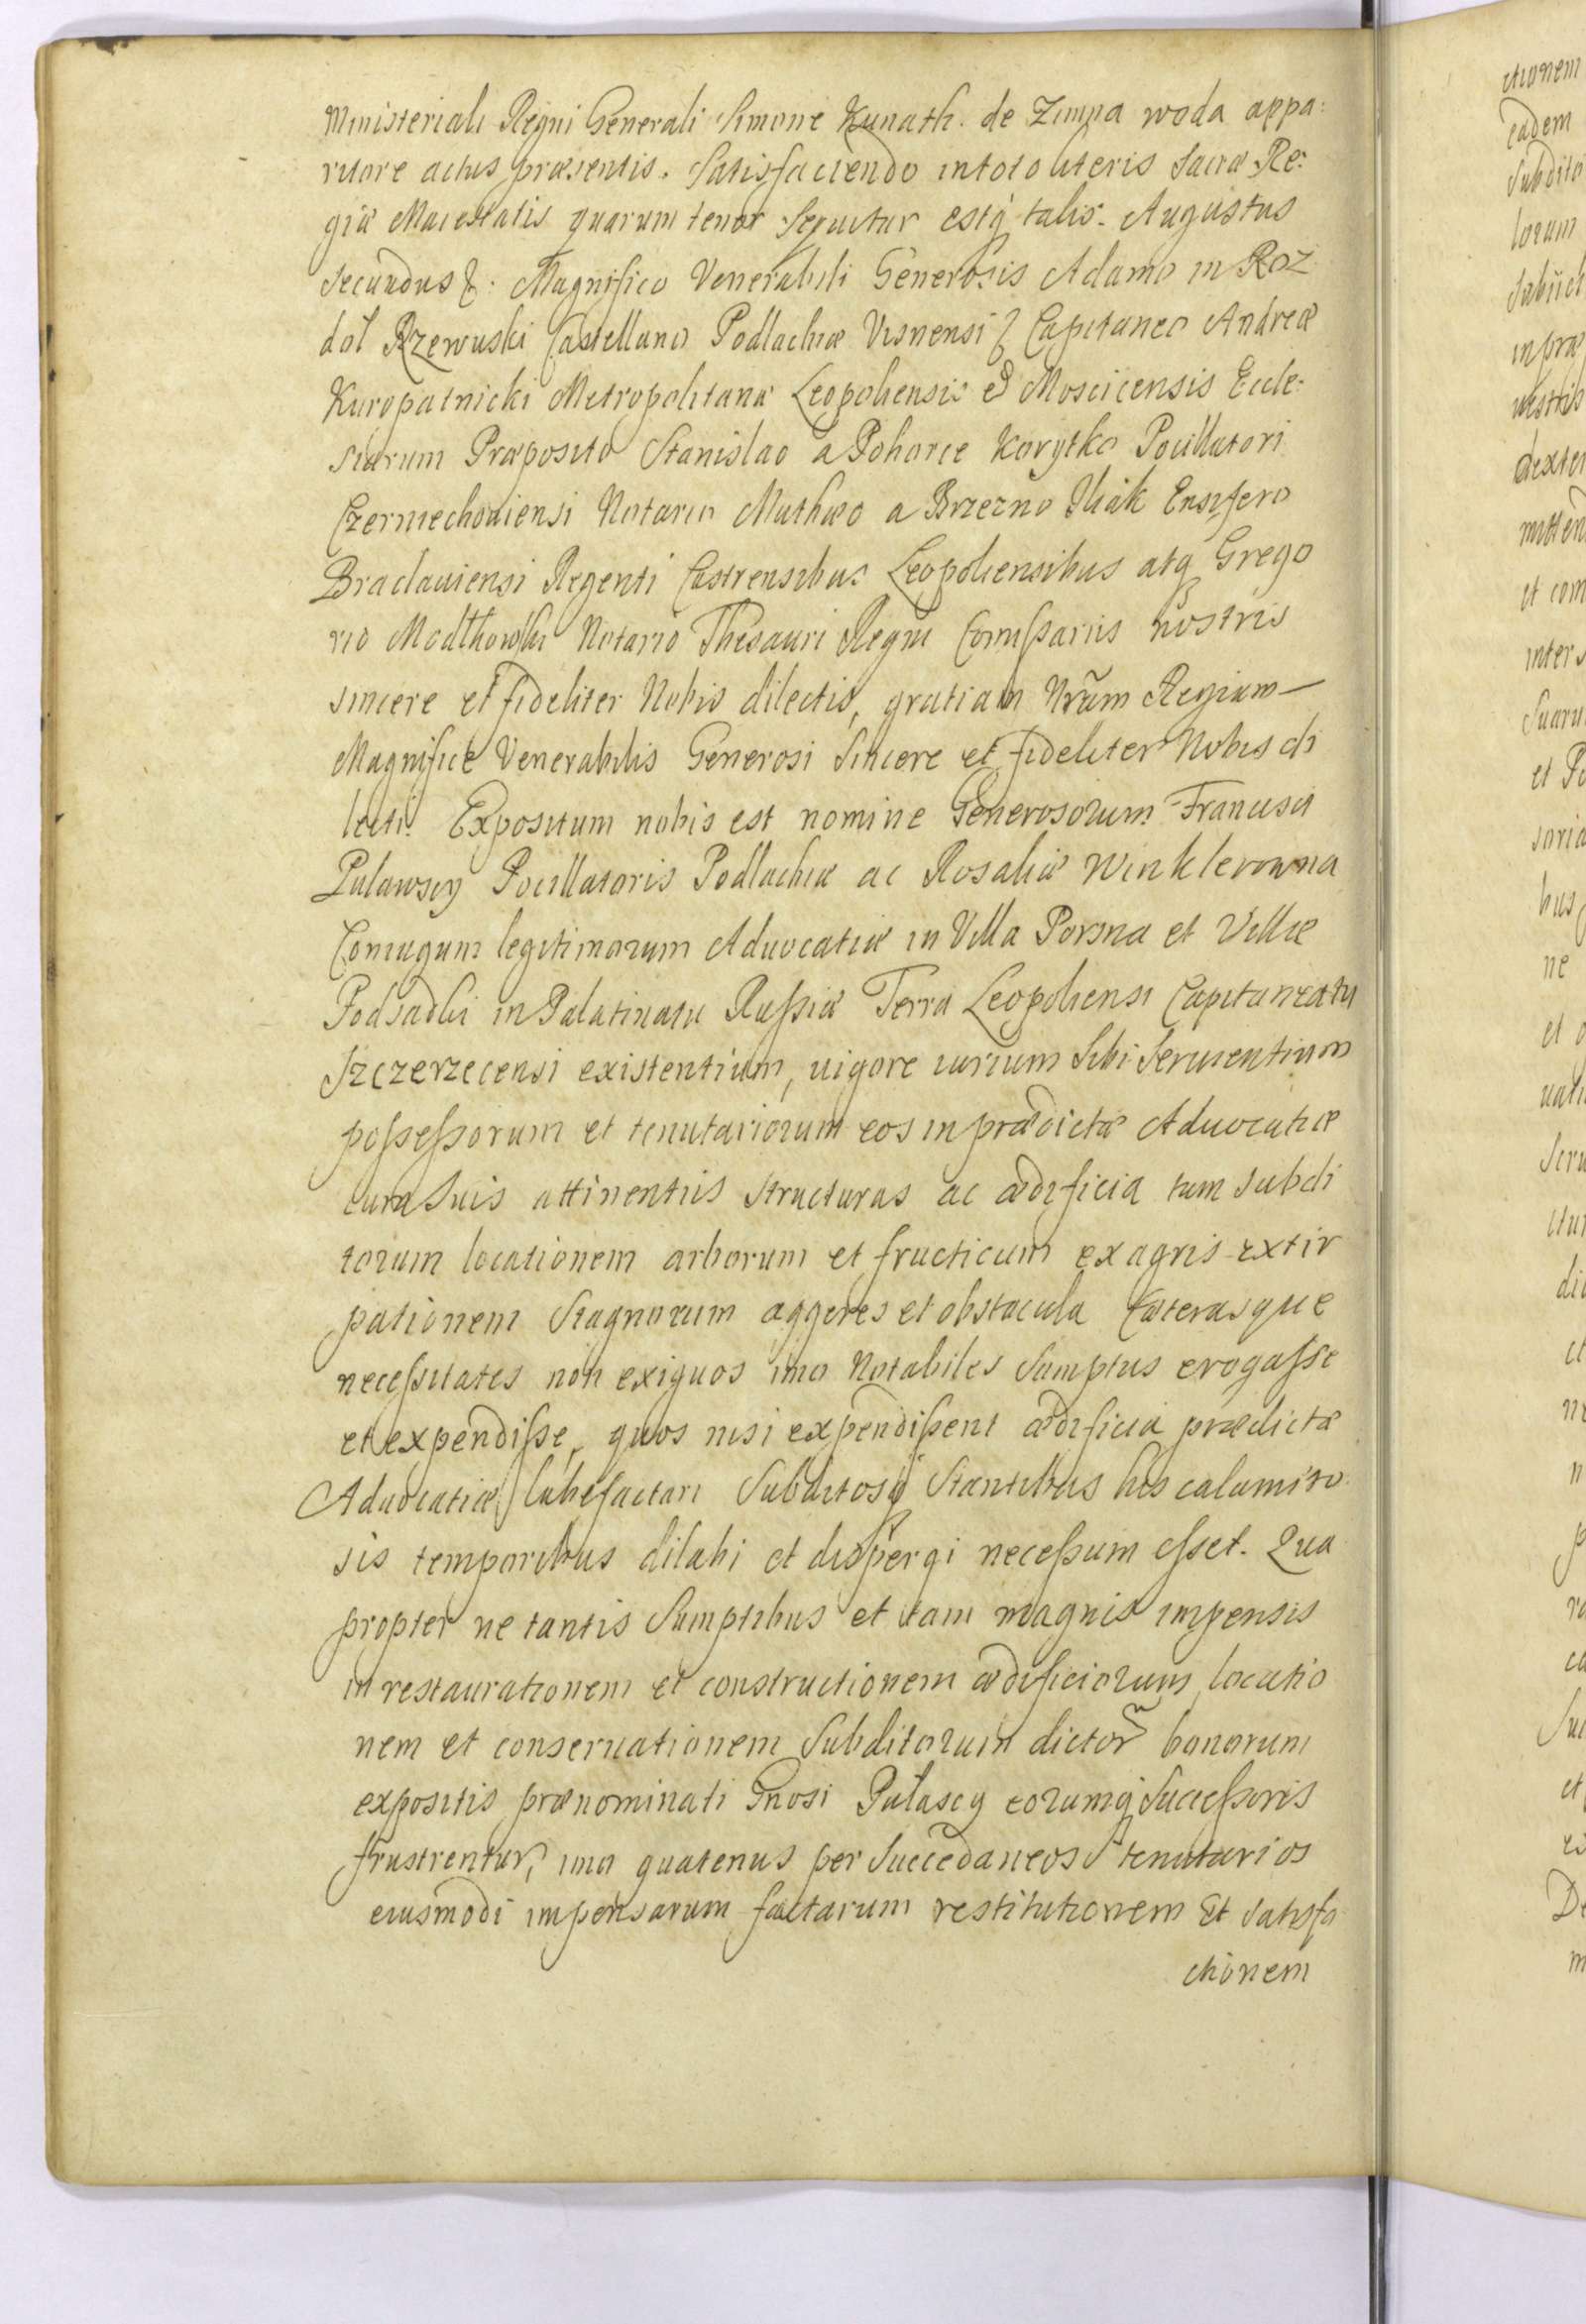 Ministeriali Regni Generali Simone Kunath. de Zimna woda appa:
ritore actus præsentis. Satisfaciendo in toto literis Sacræ Re:
giæ Maiestatis quarum tenor sequitur estq talis. Augustus
Secundus &. Magnifico Venerabili Generosis Adamo in Roz
dol Rzewuski Castellano Podlachiæ Visnensi & Capitaneo Andreæ
Kuropatnicki Metropolitanæ Leopoliensis et Moscicensis Eccle:
siarum Præposito Stanislao a Pohorce Korytko Pocillatori
Czerniechoviensi Notario Mathæo a Brzezno Ensifero
Braclauiensi Regenti Castrensibus Leopoliensibus atq Grego
rio Notario Thesauri Regni Comissariis nostris
sincere et fideliter Nobis dilectis, gratiam Nram Regiam—
Magnifice Venerabilis Generosi Sincere et fideliter Nobis di
lecti. Expositum nobis est nomine Generosorum Francisci
Pulawscy Pocillatoris Podlachiæ ac Rosaliæ Winklerowna
Coniugum legitimorum Aduocatiæ in Villa Porsna et Villæ
Podsadki in Palatinatu Russiæ Terra Leopoliensi Capitaneatu
Szczerzecensi existentium, uigore iurium Sibi Seruientium
possessorum et tenutariorum eos in prædictæ Aduocatiæ
cum Suis attinentiis structuras ac ædificia tum subdi
torum locationem arborum et fructicum ex agris extir
pationem Stagnorum aggeres et obstacula Cæterasque
necessitates non exiguos imo Notabiles Sumptus erogasse
et expendisse, quos nisi expendissent ædificia prædictæ
Aduocatiæ labefactari Subditosq Stantibus his calamito
sis temporibus dilabi et dispergi necessum esset. Qua
propter ne tantis Sumptibus et tam magnis impensis
in restaurationem et constructionem ædificiorum locatio
nem et conseruationem Subditorum dictor bonorum
expositis prænominati Gnosi Pulascy eorumq Successoris
frustrentur, imo quatenus per Succedaneos tenutarios
eiusmodi impensarum factarum restitutionem Et satisfa
ctionem